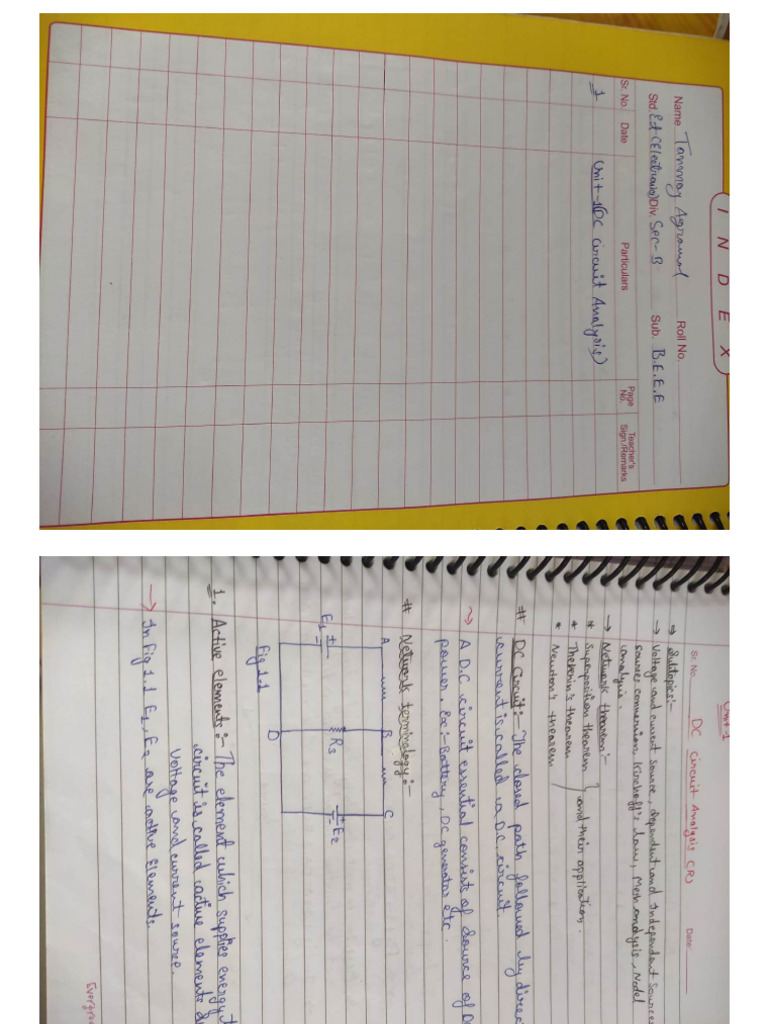 INDEX
Name Tanmay Agrawal Roll No.
Std. Ed (Electronic) Div. Sec-B Sub. B.E.E.E
Sr. No. Date Particulars Page No. Teacher's Sign./Remarks
1 Unit-1 (DC Circuit Analysis)
Unit-1
Sr. No. DC Circuit Analysis (R) Date:
→ Subtopics:-
→ Voltage and current source, dependent and Independent source
sources conversion, Kirchoff's law, Mesh analysis, Nodel
analysis.
→ Network theorem:-
* Superposition theorem
* Thevenin's theorem } and their application.
* Newton's theorem
# DC Circuit:- The closed path followed by direc
current is called a D.C. circuit.
→ A D.C. circuit essential consist of source of D
power, Ex:- Battery, DC generator etc.
# Network terminology:-
A B C
E1 R3 E2
D
Fig 1.1
1. Active elements:- The element which supplies energy t
circuit is called active elements
voltage and current source.
→ In Fig 1.1 E1, E2 are active elements.
Evergre